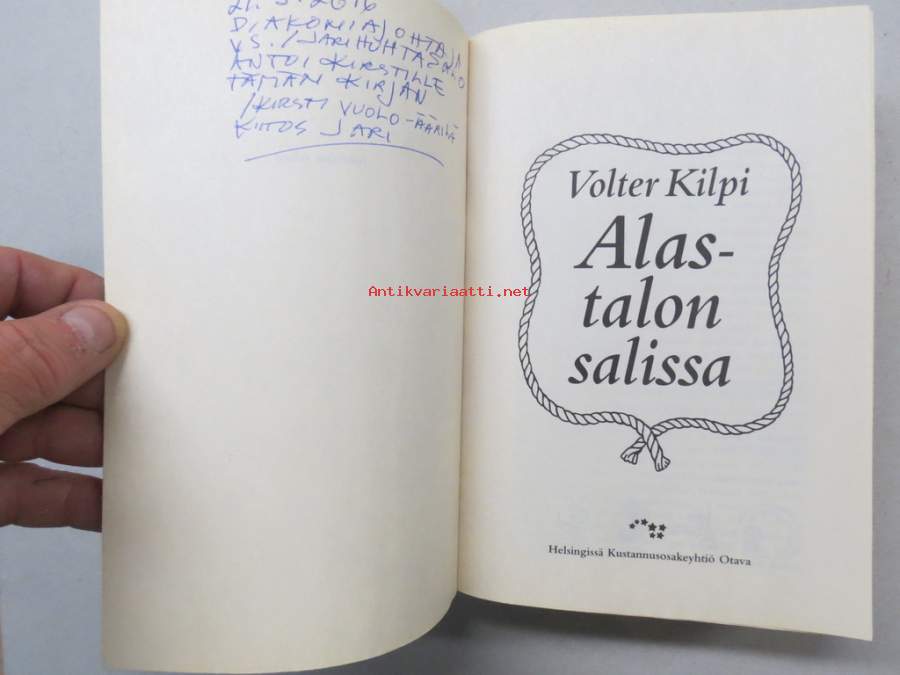 21.3.2016
DIAKONIAJOHTAJA
VS./JARI HUHTASALO
ANTOI KIRSTILLE
TÄMÄN KIRJAN
/KIRSTI VUOLO-ÄÄRILÄ
KIITOS JARI
Volter Kilpi
Alas-
talon
salissa
Antikvariaatti.net
Helsingissä Kustannusosakeyhtiö Otava